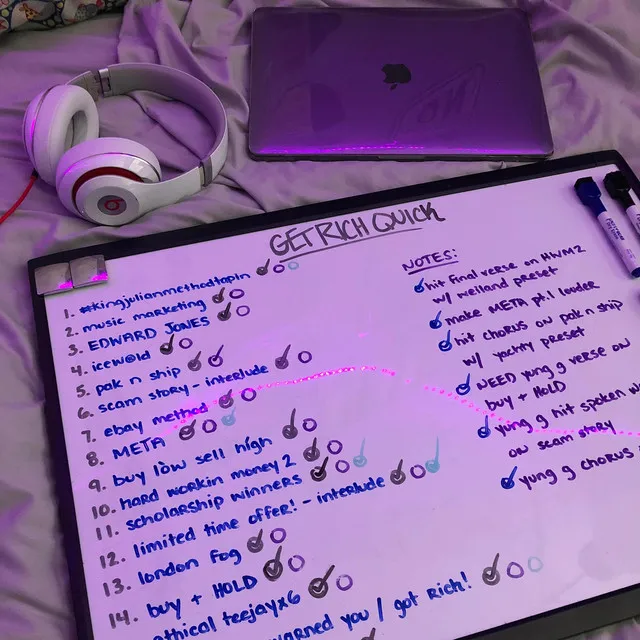 GET RICH QUICK
1. #kingjulianmethodtapin
2. music marketing
3. EDWARD JONES
4. icew@ld
5. pak n ship
6. scam story - interlude
7. ebay method
8. META
9. buy low sell high
10. hard workin money 2
11. scholarship winners
12. limited time offer! - interlude
13. london fog
14. buy + HOLD
ethical teejayx6
warned you / got rich!
NOTES:
hit final verse on HWM2
w/ weiland preset
make META pt.1 louder
hit chorus on pak n ship
w/ yachty preset
NEED yung g verse on
buy + HOLD
yung g hit spoken
on scam story
yung g chorus